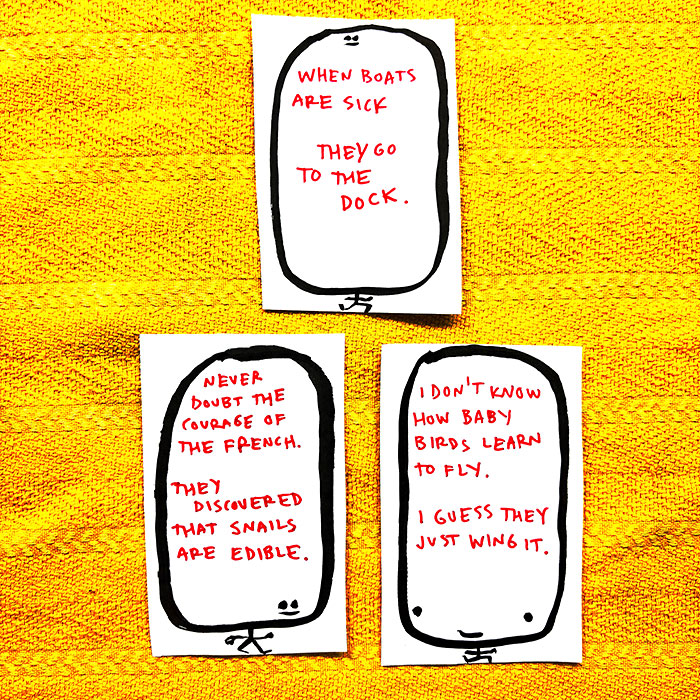 WHEN BOATS
ARE SICK
THEY GO
TO THE
DOCK.
NEVER
DOUBT THE
COURAGE OF
THE FRENCH.
THEY
DISCOVERED
THAT SNAILS
ARE EDIBLE.
I DON'T KNOW
HOW BABY
BIRDS LEARN
TO FLY.
I GUESS THEY
JUST WING IT.